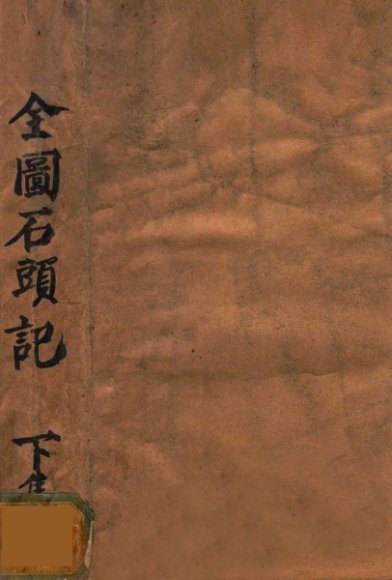 全圖石頭記 下集